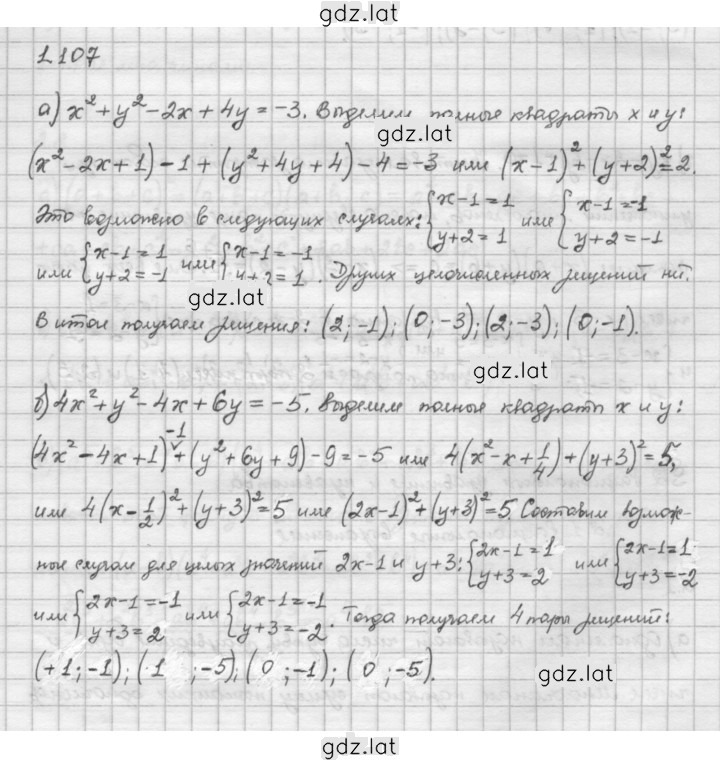 gdz.lat
1.107
а) x² + y² - 2x + 4y = -3. Выделим полные квадраты x и y:
gdz.lat
(x² - 2x + 1) - 1 + (y² + 4y + 4) - 4 = -3 или (x - 1)² + (y + 2)² = 2.
Это возможно в следующих случаях: { x - 1 = 1 y + 2 = 1 или { x - 1 = -1 y + 2 = -1
или { x - 1 = 1 y + 2 = -1 или { x - 1 = -1 y + 2 = 1 . Других целочисленных решений нет.
gdz.lat
В итоге получаем решения: (2; -1); (0; -3); (2; -3); (0; -1).
gdz.lat
б) 4x² + y² - 4x + 6y = -5. Выделим полные квадраты x и y:
(4x² - 4x + 1) -1 + (y² + 6y + 9) - 9 = -5 или 4(x² - x + 1/4) + (y + 3)² = 5,
gdz.lat
или 4(x - 1/2)² + (y + 3)² = 5 или (2x - 1)² + (y + 3)² = 5. Составим возмож-
ные случаи для целых значений 2x - 1 и y + 3: { 2x - 1 = 1 y + 3 = 2 или { 2x - 1 = 1 y + 3 = -2
или { 2x - 1 = -1 y + 3 = 2 или { 2x - 1 = -1 y + 3 = -2 . Тогда получаем 4 пары решений:
(+1; -1); (1; -5); (0; -1); (0; -5).
gdz.lat
gdz.lat